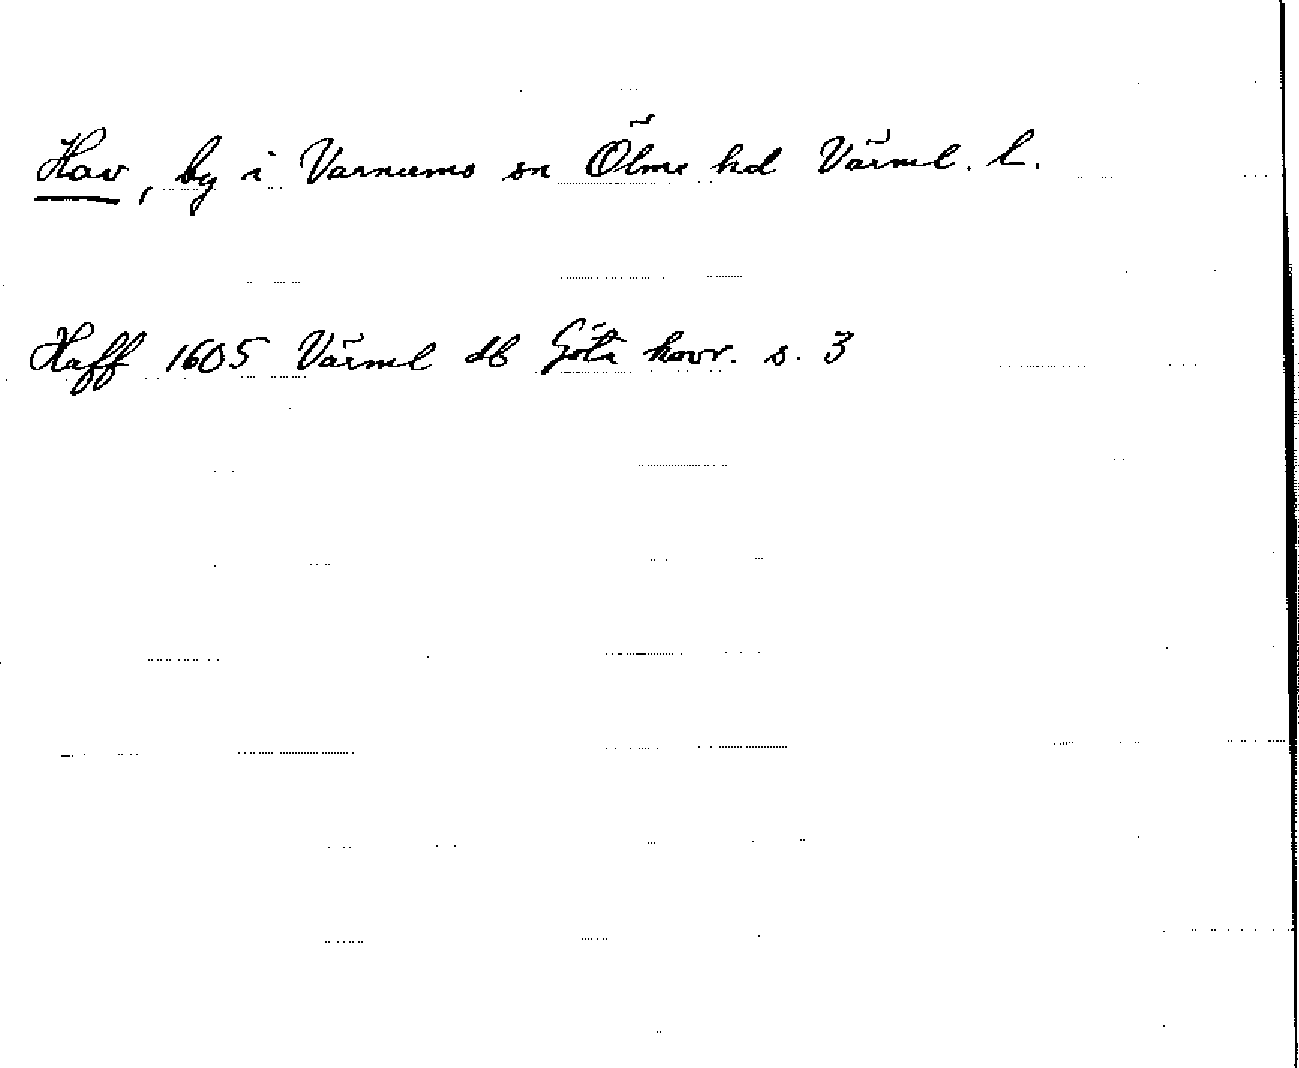 Hav, by i Varnums sn Ölme hd Värml. l.
Haff 1605 Värml db Göta hovr. s. 3